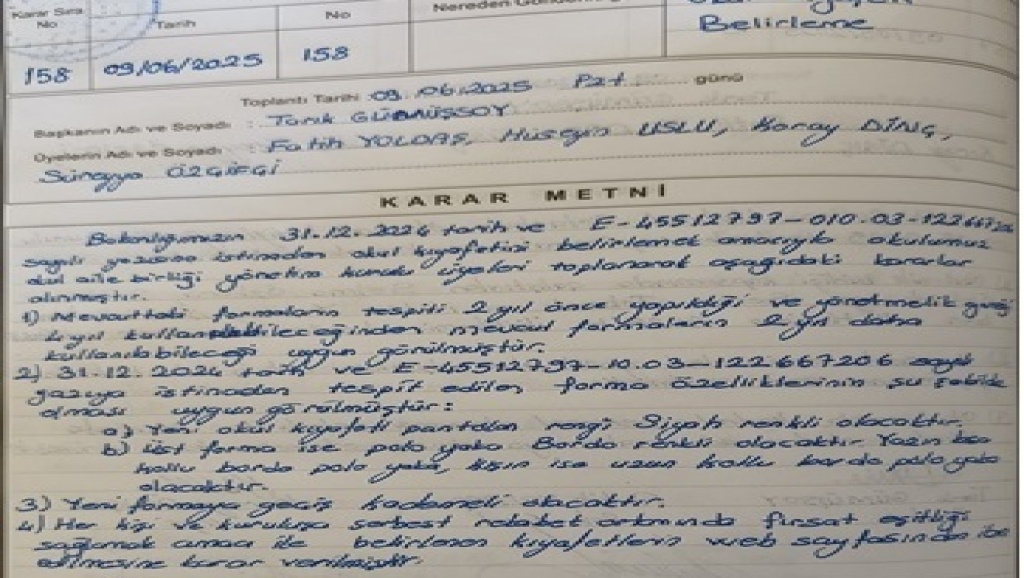 Karar Sıra No
Tarih
No
Belirleme
158
09/06/2025
158
Toplantı Tarihi : 09.06.2025 Pzt günü
Başkanın Adı ve Soyadı : Tarık GÜMÜŞSOY
Üyelerin Adı ve Soyadı : Fatih YOLDAŞ, Hüseyin USLU, Koray DİNÇ,
Süreyya ÖZÇİFÇİ
KARAR METNİ
Bakanlığımızın 31.12.2024 tarih ve E-45512797-010.03-122667206
sayılı yazısına istinaden okul kıyafetini belirlemek amacıyla okulumuz
okul aile birliği yönetim kurulu üyeleri toplanarak aşağıdaki kararlar
alınmıştır.
1) Mevcuttaki formaların tespiti 2 yıl önce yapıldığı ve yönetmelik gereği
4 yıl kullanılabileceğinden mevcut formaların 2 yıl daha
kullanılabileceği uygun görülmüştür.
2) 31.12.2024 tarih ve E-45512797-10.03-122667206 sayılı
yazıya istinaden tespit edilen forma özelliklerinin şu şekilde
olması uygun görülmüştür:
a) Yeni okul kıyafeti pantolon rengi Siyah renkli olacaktır.
b) Üst forma ise polo yaka Bordo renkli olacaktır. Yazın kısa
kollu bordo polo yaka, kışın ise uzun kollu bordo polo yaka
olacaktır.
3) Yeni formaya geçiş kademeli olacaktır.
4) Her kişi ve kuruluşa serbest rekabet ortamında fırsat eşitliği
sağlamak amacı ile belirlenen kıyafetlerin web sayfasından ilan
edilmesine karar verilmiştir.